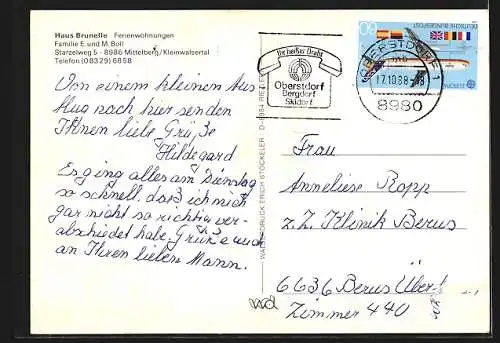 Haus Brunelle Ferienwohnungen
Familie E. und M. Boll
Starzelweg 5 - 8986 Mittelberg/Kleinwalsertal
Telefon (08329) 6858
Von einem kleinen Aus
flug nach hier senden
Ihnen liebe Grüße
Hildegard
Es ging alles am Dienstag
so schnell, daß ich mich
gar nicht so richtig ver-
abschiedet habe. Grüße auch
an Ihren lieben Mann.
Ihr heißer Draht
Oberstdorf
Bergdorf
Skidorf
DEUTSCHE BUNDESPOST
OBERSTDORF 1
mb
17.10.88-18
8980
ERICH STOCKELER
Frau
Anneliese Ropp
z.Z. Klinik Berus
6636 Berus Über!
Zimmer 440